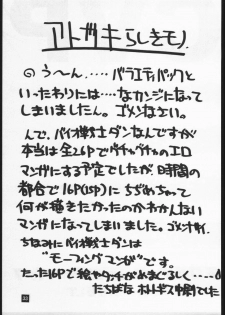 アトガキらしきモノ
のう〜ん、……バラエティパックと
いったわりには……なカンジになって
しまいましたん。ゴメンなさい。
んで、バイオ戦士ダンなんですが
本当は全26Pでグチャグチャのエロ
マンガにする予定でしたが、日時間の
都合で16P(15P)にちぢめちゃって
何が描きたかったのかわかんない
マンガになってしまいました。ゴメンナサイ。
ちなみにバイオ戦士ダンは
"モーフィングマンガ"です。
たった16Pで絵やタッチがめまぐるしく……
たちばな
でした